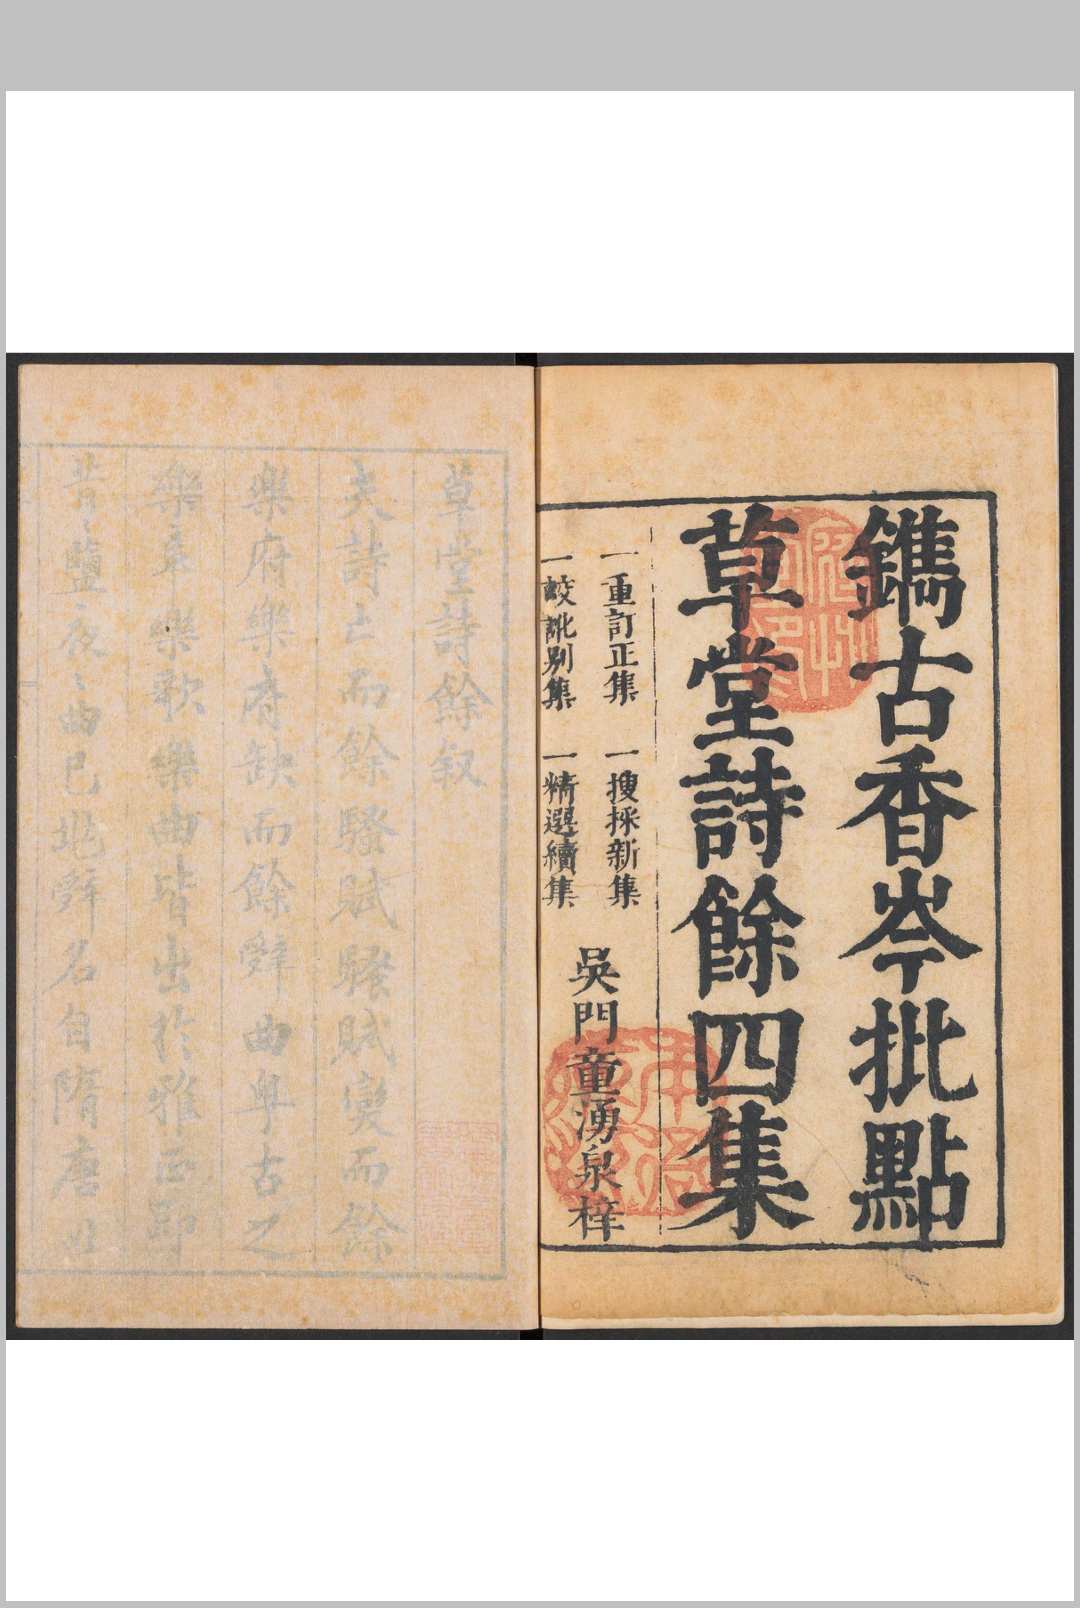 鐫古香岑批點
草堂詩餘四集
一重訂正集 一搜採新集
一較訛別集 一精選續集
吳門童湧泉梓
草堂詩餘叙
夫詩亡而餘騷賦騷賦變而餘
樂府樂府缺而餘辭曲粤古之
樂章樂歌樂曲皆出於雅正即
昔昔鹽夜夜曲已
辭名自隋唐以